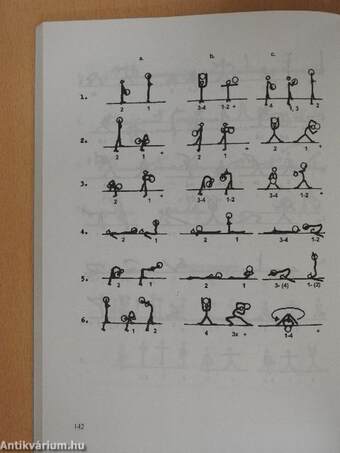 a. b. c.
1. 2 1 3-4 1-2 + 4 1, 3 2
2. 2 1 + 2 1 + 2 1 +
3. 2 1 + 3-4 1-2 3-4 1-2
4. 2 1 2 1 3-4 1-2
5. 2 1 2 1 3- (4) 1- (2)
6. 1 2 + 4 3x + 1-4 +
142
Antikvárium.hu
Antikvárium.hu